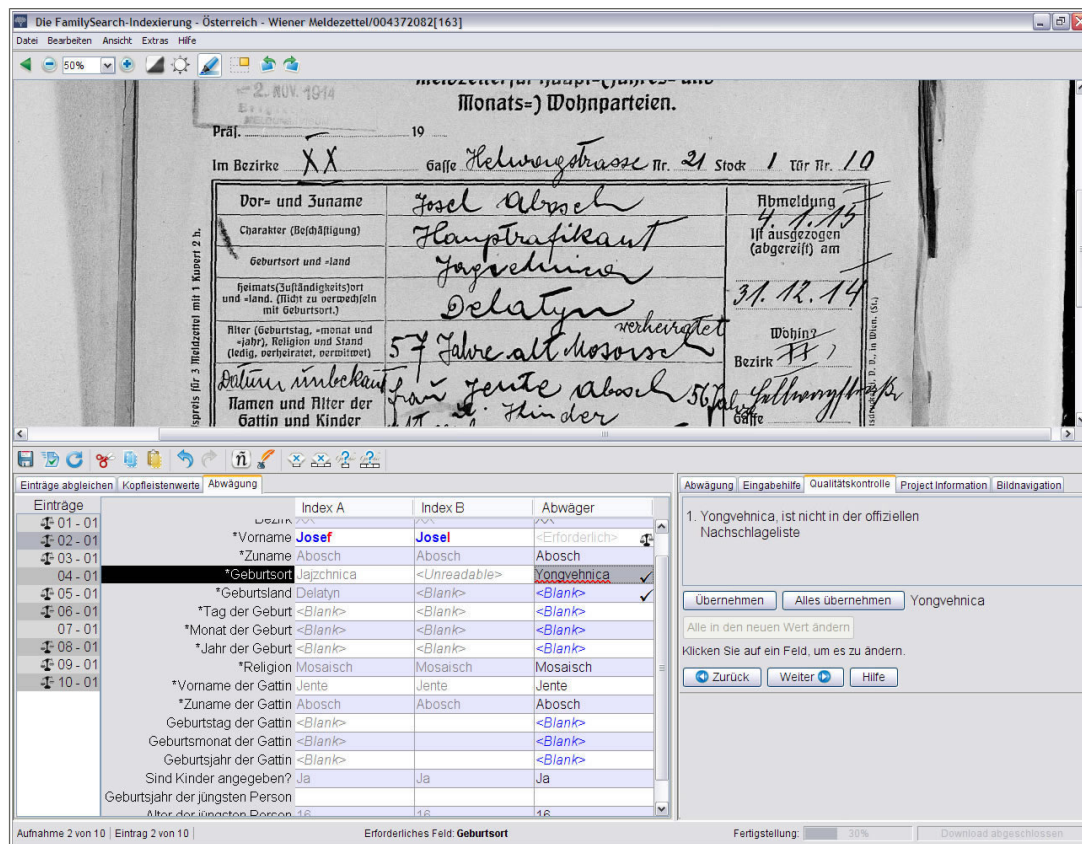 Die FamilySearch-Indexierung - Österreich - Wiener Meldezettel/004372082[163]
Datei Bearbeiten Ansicht Extras Hilfe
50%
- 2. NOV. 1914
Monats=) Wohnparteien.
Präs. 19
Im Bezirke XX Gasse Helwergstrasse Nr. 21 Stock 1 Tür Nr. 10
Vor= und Zuname Josel Abosch Abmeldung
4. 1. 15
Charakter (Beschäftigung) Hauptrafikant Ist ausgezogen
(abgereist) am
Geburtsort und =land
Heimats(Zuständigkeits)ort
und =land. (Nicht zu verwechseln
mit Geburtsort.) Delatyn 31. 12. 14
Alter (Geburtstag, =monat und
=jahr), Religion und Stand
(ledig, verheiratet, verwitwet) 57 Jahre alt verheiratet Wohin?
Bezirk
Datum unbekannt Frau Jente Abosch 56 Jahre
Namen und Alter der
Gattin und Kinder Kinder Gasse
spreis für 3 Meldzettel mit 1 Kuvert 2 h.
Einträge abgleichen Kopfleistenwerte Abwägung
Einträge Index A Index B Abwäger
01 - 01 Bezirk XX XX XX
02 - 01 *Vorname Josef Josel <Erforderlich>
03 - 01 *Zuname Abosch Abosch Abosch
04 - 01 *Geburtsort Jajzchnica <Unreadable> Yongvehnica
05 - 01 *Geburtsland Delatyn <Blank> <Blank>
06 - 01 *Tag der Geburt <Blank> <Blank> <Blank>
07 - 01 *Monat der Geburt <Blank> <Blank> <Blank>
08 - 01 *Jahr der Geburt <Blank> <Blank> <Blank>
09 - 01 *Religion Mosaisch Mosaisch Mosaisch
10 - 01 *Vorname der Gattin Jente Jente Jente
*Zuname der Gattin Abosch Abosch Abosch
Geburtstag der Gattin <Blank> <Blank>
Geburtsmonat der Gattin <Blank> <Blank>
Geburtsjahr der Gattin <Blank> <Blank>
Sind Kinder angegeben? Ja Ja Ja
Geburtsjahr der jüngsten Person
Alter der jüngsten Person 16 16 16
Abwägung Eingabehilfe Qualitätskontrolle Project Information Bildnavigation
1. Yongvehnica, ist nicht in der offiziellen
Nachschlageliste
Übernehmen Alles übernehmen Yongvehnica
Alle in den neuen Wert ändern
Klicken Sie auf ein Feld, um es zu ändern.
Zurück Weiter Hilfe
Aufnahme 2 von 10 Eintrag 2 von 10 Erforderliches Feld: Geburtsort Fertigstellung: 30% Download abgeschlossen